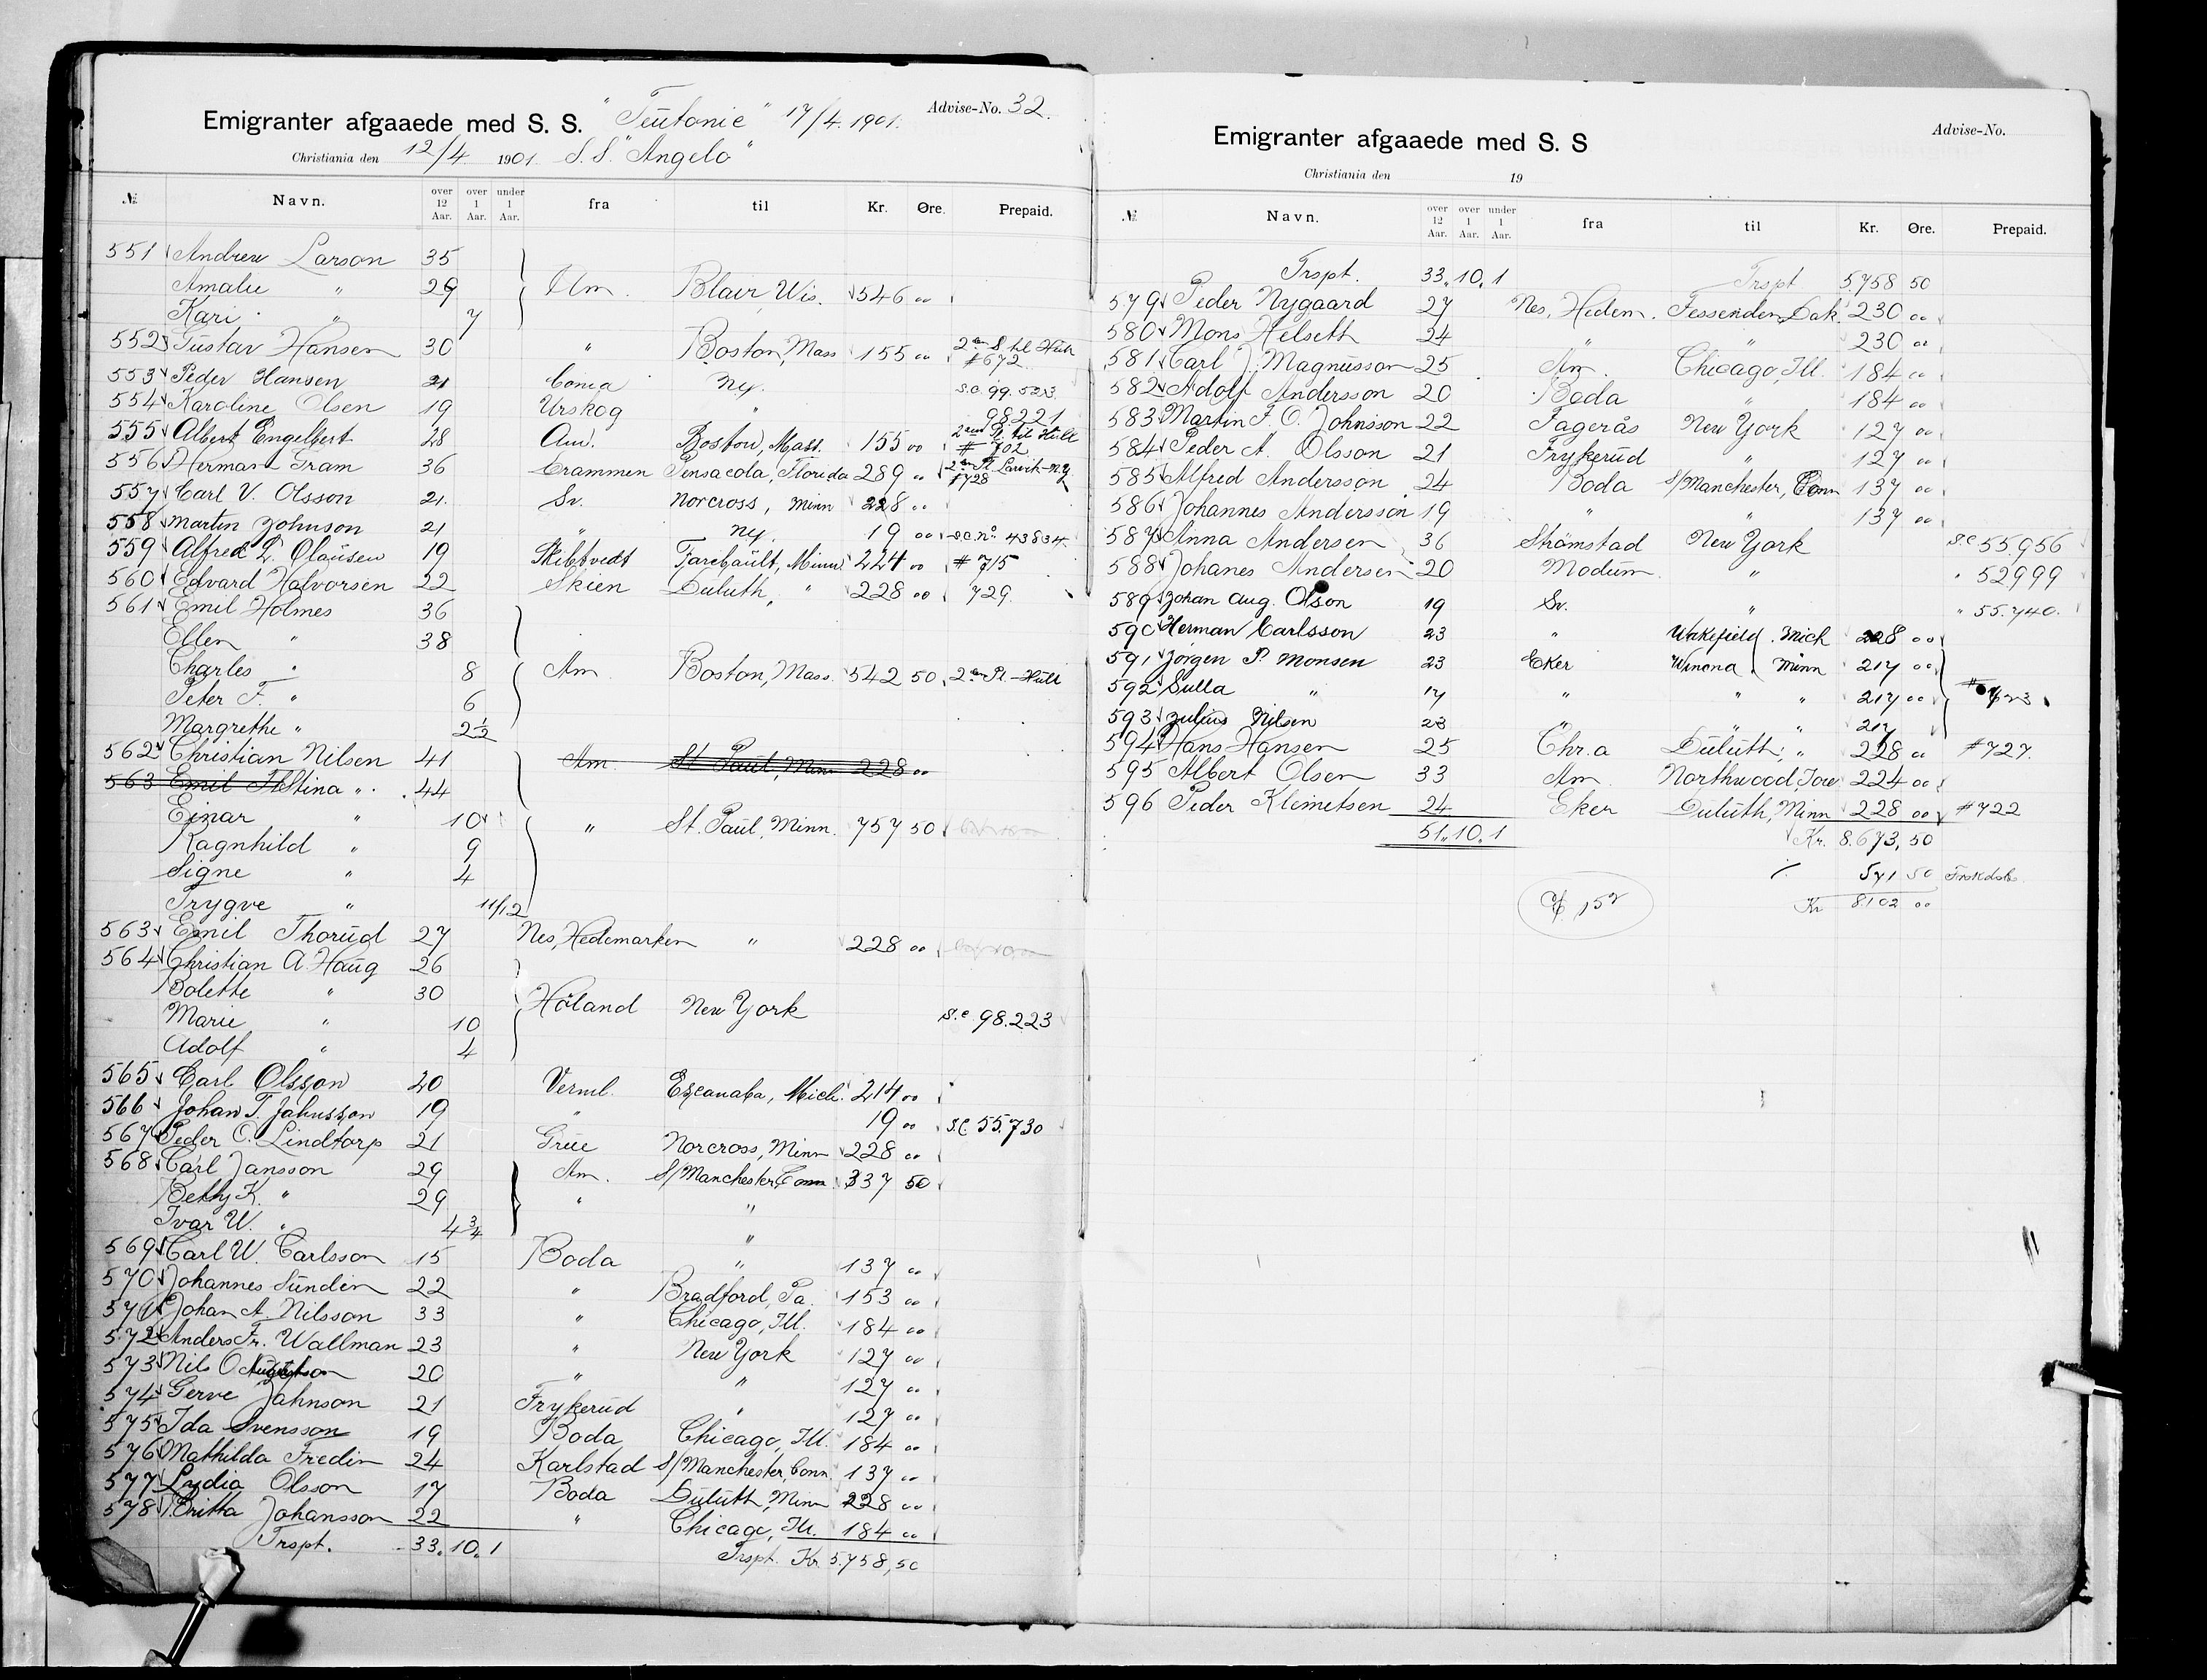 Emigranter afgaaede med S. S. "Teutonic" 17/4. 1901. Advise-No. 32.
Christiania den 12/4 1901. S.S. "Angelo"
№ Navn. over 12 Aar. over 1 Aar. under 1 Aar. fra til Kr. Øre. Prepaid.
551 Andrew Larson 35
Amalie " 29 Am. Blair, Wis. 546 00
Kari " 7
552 Gustav Hansen 30 " Boston, Mass 155 00 2den Pl. til Hull #672
553 Peder Hansen 21 ny. s.c. 99.523
554 Karoline Olsen 19 Urskog " 98221
555 Albert Engelbert 28 Am. Boston, Mass. 155 00 2den Pl. til Hull # 702
556 Herman Gram 36 Drammen Pensacola, Florida 289 " 2den Pl. Larvik-N.Y. #728
557 Carl V. Olsson 21. Sv. Norcross, Minn 228 00
558 Martin Johnson 21 " ny. 19 00 s.c. no. 43834
559 Alfred L. Olausen 19 Skibtvedt Farebault, Minn 224 00 # 715
560 Edvard Halvorsen 22 Skien Duluth, " 228 00 729.
561 Emil Holmes 36
Ellen " 38
Charles " 8 Am Boston, Mass. 542 50 2den Pl. - Hull
Peter F. " 6
Margrethe " 2½
562 Christian Nilsen 41 Am. St Paul, Minn 228 00
563 Emil Th Stina " 44
Einar " 10
" St. Paul, Minn. 757 50
Ragnhild " 9
Signe " 4
Trygve " 11/12
563 Emil Thorud 27 Nes, Hedemarken " 228 00
564 Christian A. Haug 26
Bolette " 30 Høland New York
Marie " 10 s.c. 98.223
Adolf " 4
565 Carl Olsson 20 Verml. Escanaba, Mich. 214 00
566 Johan T. Jahnsson 19 " 19 00 s.c. 55.730
567 Peder O. Lindtorp 21 Grue Norcross, Minn 228 00
568 Carl Jansson 29 Am. S/Manchester, Conn 337 50
Betty K. " 29 " "
Ivar W. " 4¾ "
569 Carl W. Carlsson 15 Boda " 137 00
570 Johannes Sundin 22 " Bradford, Pa. 153 00
571 Johan A. Nilsson 33 " Chicago, Ill. 184 00
572 Anders Fr. Wallman 23 " New York 127 00
573 Nils O 20 " " 127 00
574 Gerve Jahnson 21 Frykerud " 127 00
575 Ida Svensson 19 Boda Chicago, Ill. 184 00
576 Mathilda Fredin 24 Karlstad S/Manchester, Conn. 137 00
577 Lydia Olsson 17 Boda Duluth, Minn 228 00
578 Britta Johansson 22 " Chicago, Ill. 184 00
Trspt. 33. 10. 1 Trspt. Kr. 5.758,50
Emigranter afgaaede med S. S Advise-No.
Christiania den 19
№ Navn. over 12 Aar. over 1 Aar. under 1 Aar. fra til Kr. Øre. Prepaid.
Trspt. 33. 10. 1 Trspt 5758 50
579 Peder Nygaard 27 Nes, Hedem. Fessenden, Dak. 230 00
580 Mons Helseth 24 " " 230 00
581 Carl J. Magnusson 25 Am. Chicago, Ill. 184 00
582 Adolf Andersson 20 Boda " 184 00
583 Martin F. O. Johnsson 22 Fagerås New York 127 00
584 Peder A. Olsson 21 Frykerud " 127 00
585 Alfred Andersson 24 Boda S/Manchester, Conn 137 00
586 Johannes Andersson 19 " " 137 00
587 Anna Andersen 36 Strömstad New York s.c 55.956
588 Johanes Andersen 20 Modum " " 52999
589 Johan Aug. Olson 19 Sv. " " 55.740.
590 Herman Carlsson 23 " Wakefield. Mich 228 00
591 Jörgen P. Monsen 23 Eker Winona, Minn 217 00
592 Sulla " 17 " " " 217 00 # 723
593 Julius Nilsen 23 " " " 217
594 Hans Hansen 25 Chr.a Duluth, " 228 00 #727.
595 Albert Olsen 33 Am Northwood, Iowa 224 00
596 Peder Klemetsen 24 Eker Duluth, Minn 228 00 #722
51. 10. 1 Kr. 8.673,50
571 50
152 Kr 8102 00